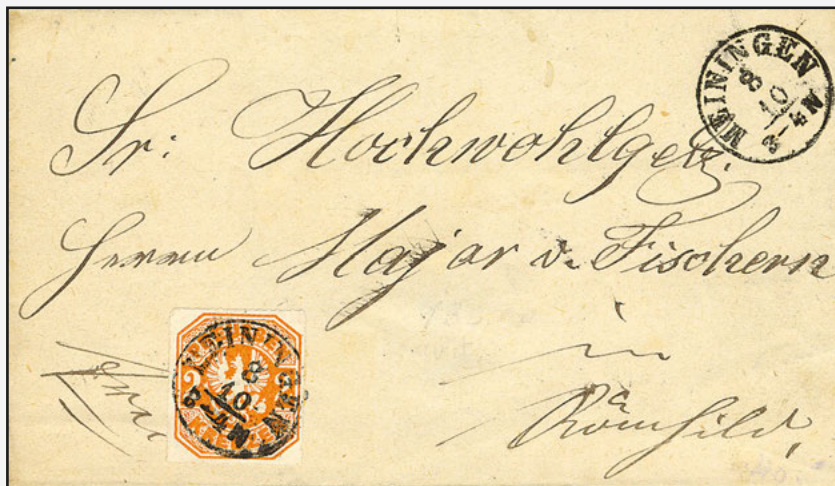 MEININGEN
8
10
3-4N
Sr: Hochwohlgeb.
Herrn Major v. Fischern
in
Römhild,
PREUSSEN
2 2
KREUZER
MEININGEN
8
10
3-4N